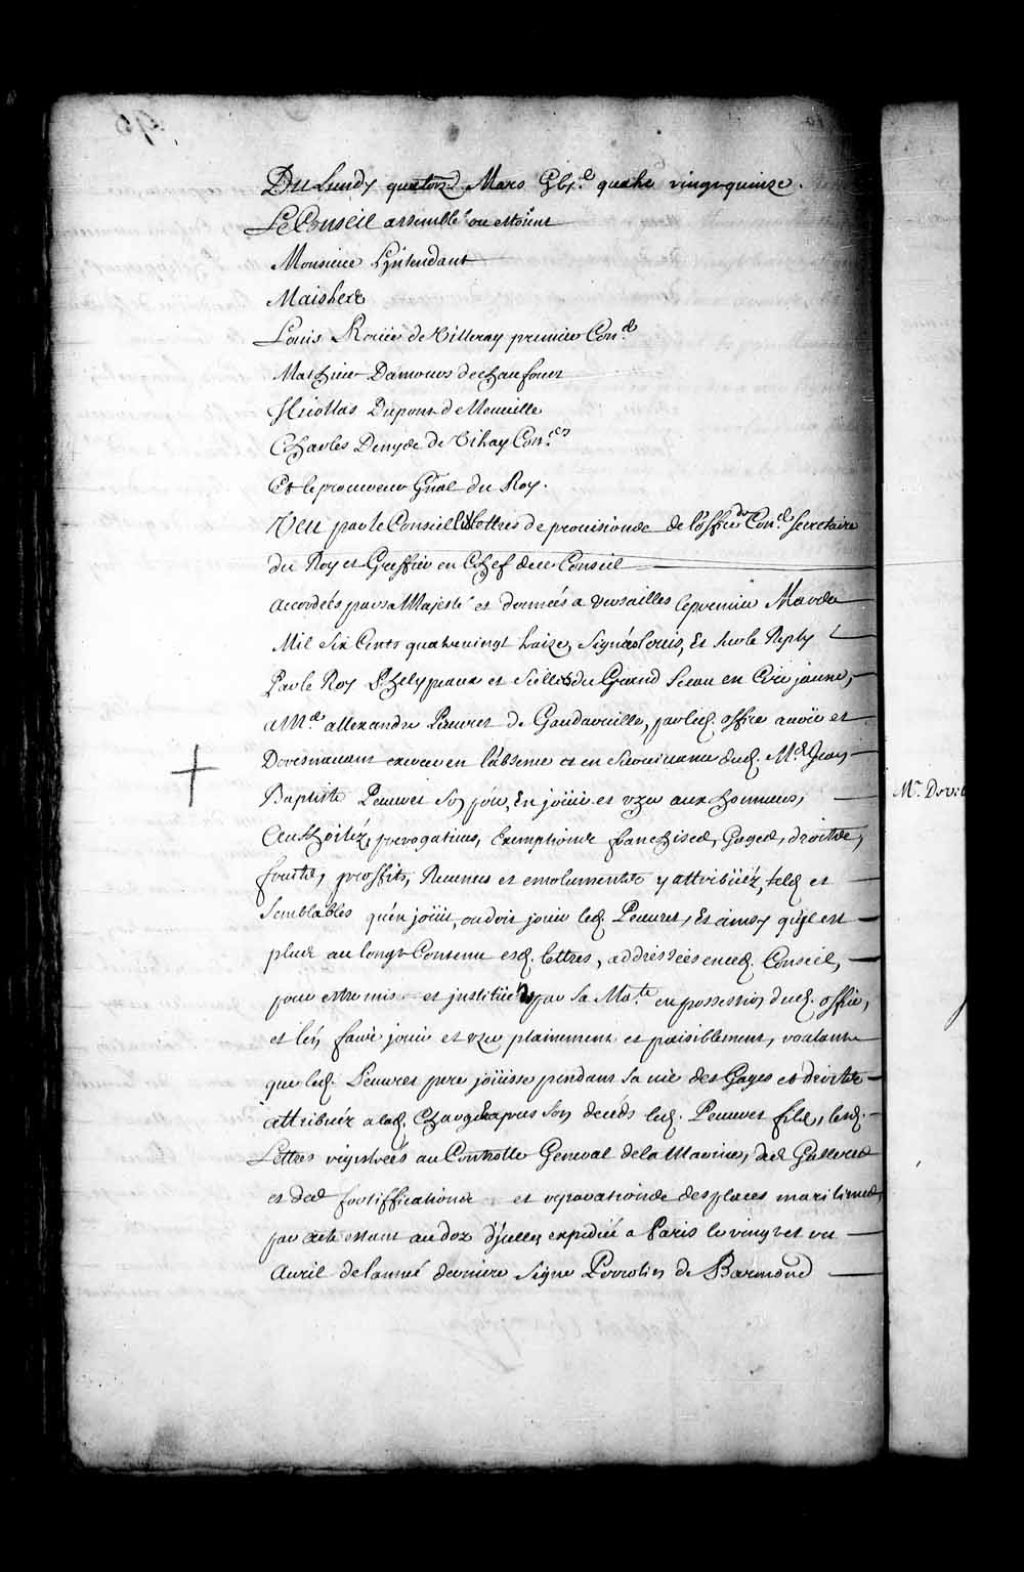 Du Lundy quatorze Mars Gbj.e quatre vingt quinze.
Le Conseil assemblé ou estoient
Monsieur L'Intendant
Maistres
Louis Roüer de Villeray premier Con.er
Mathieu Damours deschaufour
Nicollas Dupont de Neuville
Charles Denys de Vitray Con.ers
Et le procureur Gñal du Roy.
Veu par le Conseil les lettres de provisions de l'office de Con.er Secretaire
du Roy et Greffier en Chef de ce Conseil
accordées par sa Majesté et données a Versailles le premier Mars
Mil Six Cents quatrevingt traize, Signées Louis, Et sur le Reply
Par le Roy Phelypeaux et Scellées du Grand Sceau en Cire jaune,
a M.e allexandre Peuvret de Gaudarville, pour led. office avoir et
Doresnavant exercer en l'absence et en Survivance dud. M.e Jean
Baptiste Peuvret Son pere, En joüir et uzer aux honneurs,
Authoritéz, prerogatives, Exemptions franchises, Gages, droits,
fruits, proffits, Revenus et emoluments y attribüéz, tels et
Semblables qu'en joüit, ou doit jouir led. Peuvret, Et ainsy qu'il est
plus au long Contenu esd. lettres, addressées en ced. Conseil,
pour estre mis et institüé par sa Ma.té en possession dud. office,
et l'en faire jouir et uzer plainement et paisiblement, voulant
que led. Peuvret pere joüisse pendant sa vie des Gages et droits
attribuéz a lad. Charge et apres Son deceds led. Peuvret fils, lesd.
Lettres registrées au Controlle General de la Marine, des Galleres
et des fortiffications et reparations des places maritimes,
par acte estant au doz d'jcelles expedié a Paris le vingt et un
Avril de l'anneé derniere Signé Perrotin de Barmond
M.r Dovil